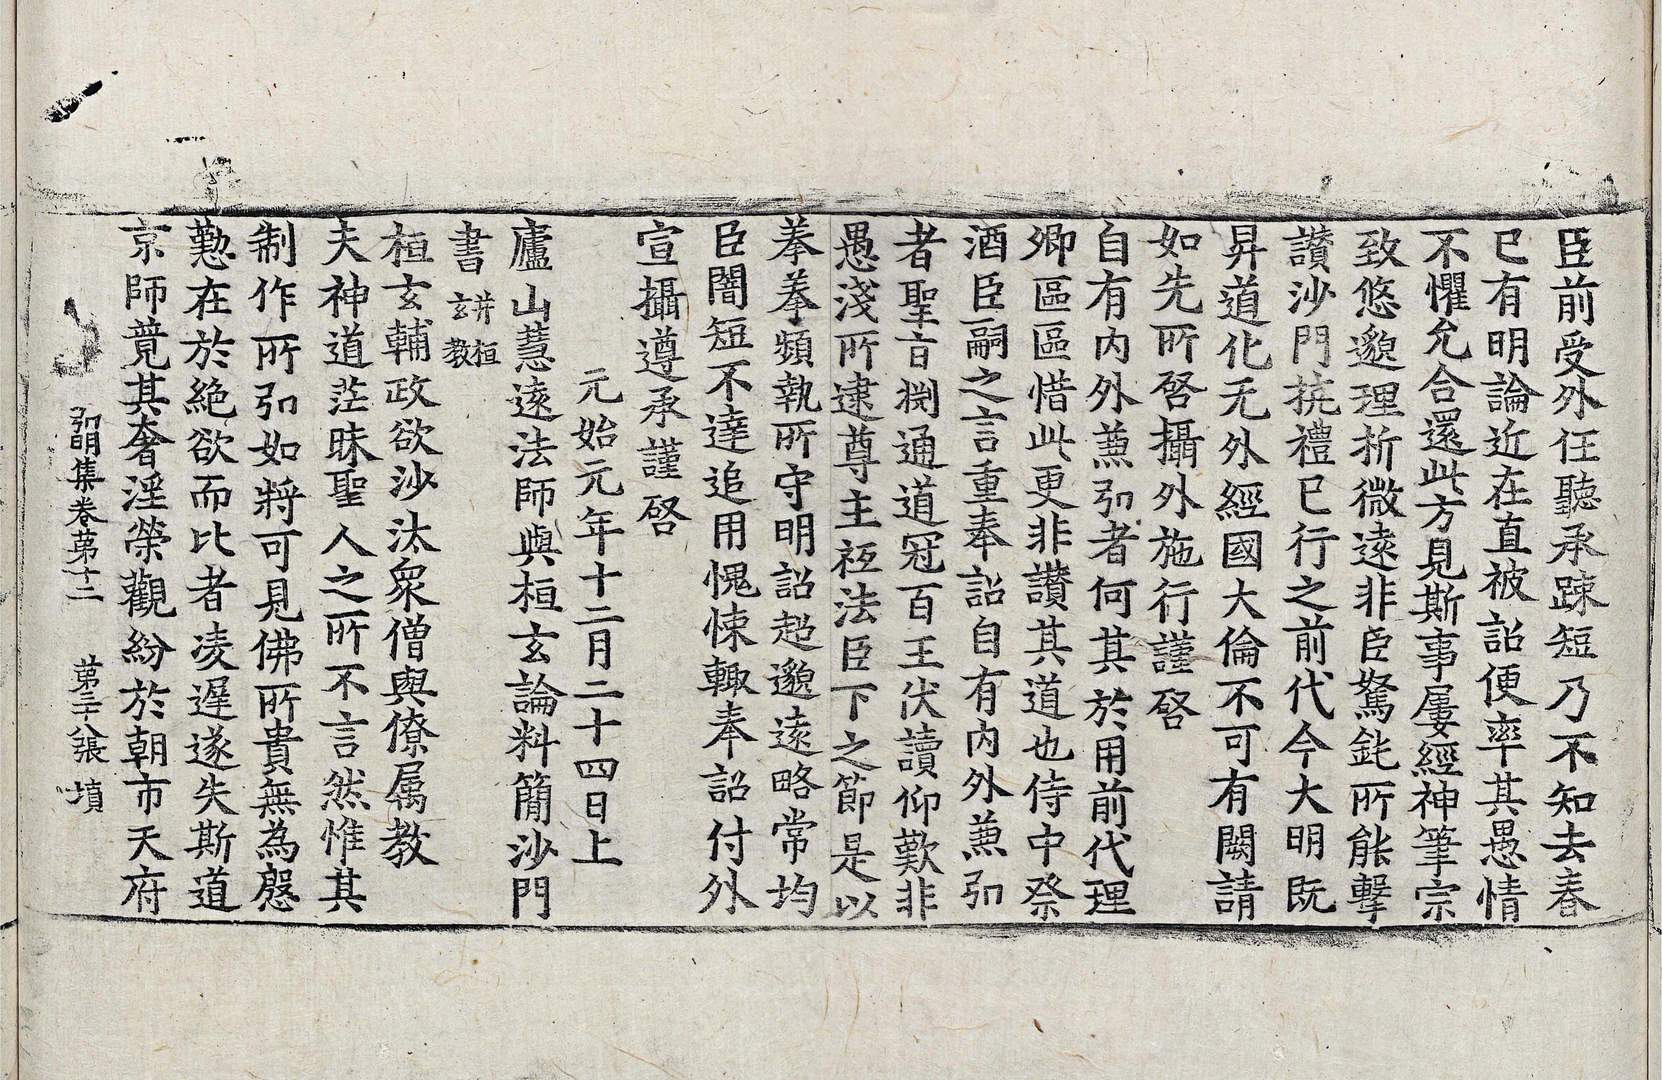 臣前受外任聽承踈短乃不知去春
已有明論近在直被詔便率其愚情
不懼允合還此方見斯事屢經神筆宗
致悠邈理折微遠非臣駑鈍所能擊
讃沙門抗禮已行之前代今大明既
昇道化无外經國大倫不可有闕請
如先所啓攝外施行謹啓
自有内外兼弘者何其於用前代理
卿區區惜此更非讃其道也侍中祭
酒臣嗣之言重奉詔自有内外兼弘
者聖旨渊通道冠百王伏讀仰歎非
愚淺所逮尊主祗法臣下之節是以
拳拳頻執所守明詔超邈遠略常均
臣闇短不達追用愧悚輙奉詔付外
宣攝遵承謹啓
元始元年十二月二十四日上
廬山慧遠法師與桓玄論料簡沙門
書并桓玄教
桓玄輔政欲沙汰衆僧與僚属教
夫神道茫昧聖人之所不言然惟其
制作所弘如將可見佛所貴無為慇
懃在於絶欲而比者凌遲遂失斯道
京師竟其奢淫榮觀紛於朝市天府
弘明集卷第十二 第三十八張 墳